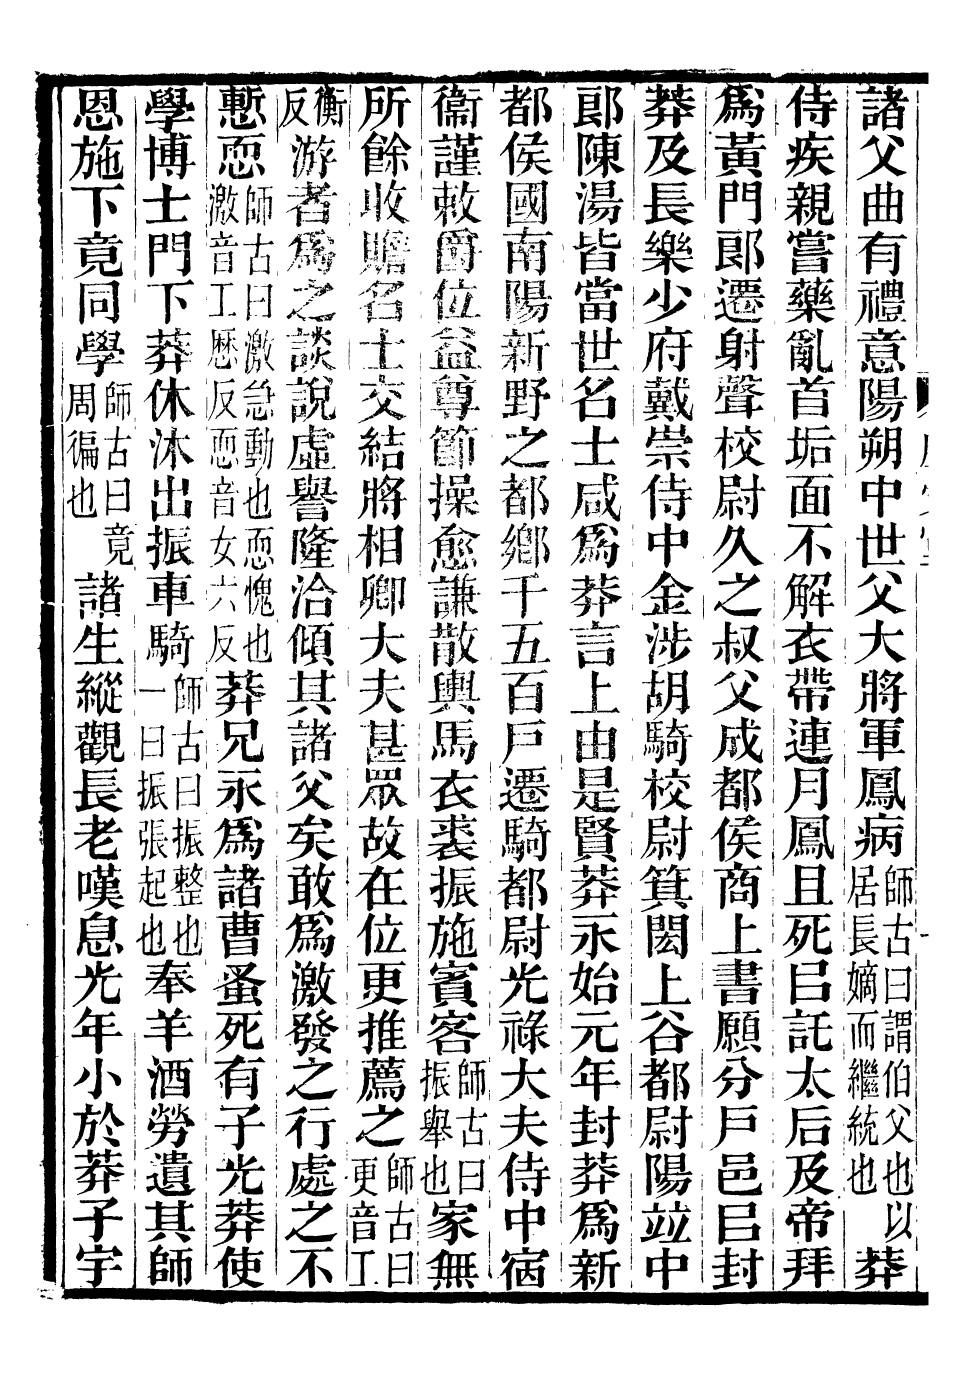 諸父曲有禮意陽朔中世父大將軍鳳病師古曰謂伯父也以居長嫡而繼統也莽
侍疾親嘗藥亂首垢面不解衣帶連月鳳且死㠯託太后及帝拜
爲黃門郞遷射聲校尉久之叔父成都侯商上書願分戶邑㠯封
莽及長樂少府戴崇侍中金涉胡騎校尉箕閎上谷都尉陽竝中
郞陳湯皆當世名士咸爲莽言上由是賢莽永始元年封莽爲新
都侯國南陽新野之都鄕千五百戶遷騎都尉光祿大夫侍中宿
衞謹敕爵位益尊節操愈謙散輿馬衣裘振施賓客師古曰振舉也家無
所餘收贍名士交結將相卿大夫甚眾故在位更推薦之師古曰更音工
衡反游者爲之談說虛譽隆洽傾其諸父矣敢爲激發之行處之不
慙恧師古曰激急動也恧愧也激音工歷反恧音女六反莽兄永爲諸曹蚤死有子光莽使
學博士門下莽休沐出振車騎師古曰振整也一曰振張起也奉羊酒勞遺其師
恩施下竟同學師古曰竟周徧也諸生縱觀長老嘆息光年小於莽子宇